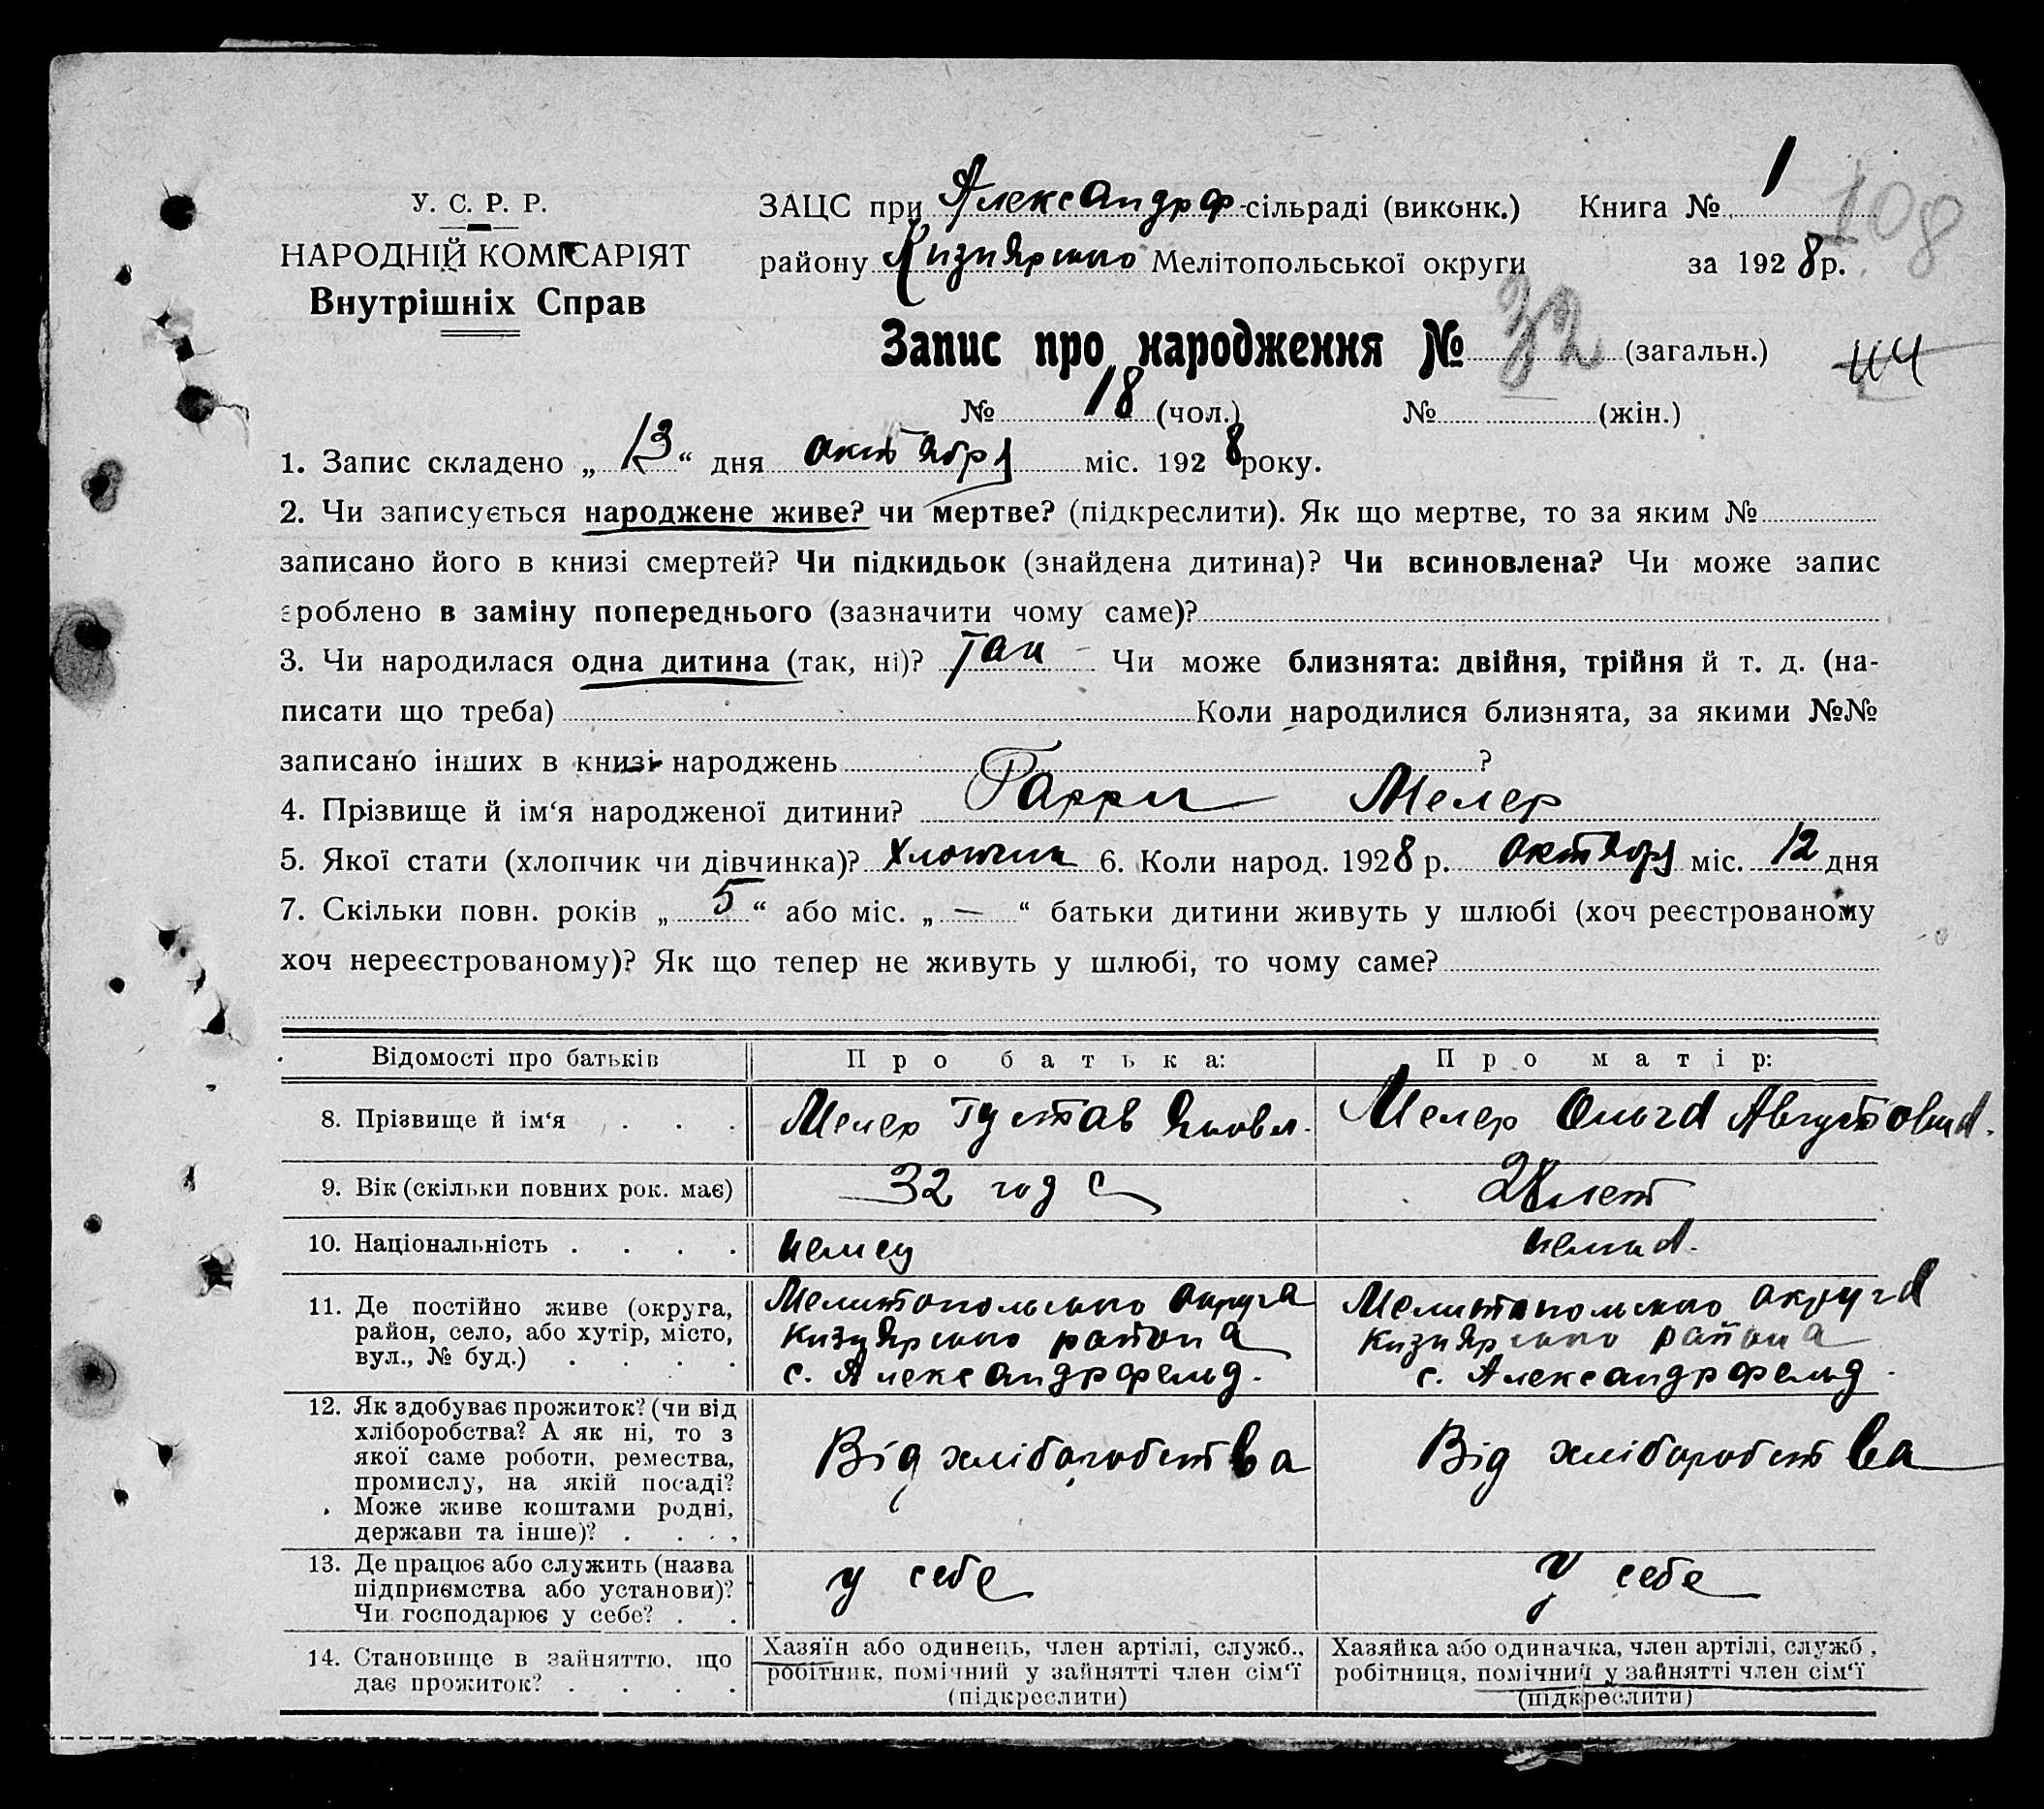 У. С. Р. Р.
НАРОДНІЙ КОМІСАРІЯТ
Внутрішніх Справ
ЗАЦС при Александрф-сільраді (виконк.) Книга № 1
108
району Кизиярского Мелітопольської округи за 1928 р.
Запис про народження № 32 (загальн.)
№ 18 (чол.) № (жін.)
1. Запис складено „ 13 “ дня октября міс. 1928 року.
2. Чи записується народжене живе? чи мертве? (підкреслити). Як що мертве, то за яким №
записано його в книзі смертей? Чи підкидьок (знайдена дитина)? Чи всиновлена? Чи може запис
зроблено в заміну попереднього (зазначити чому саме)?
3. Чи народилася одна дитина (так, ні)? Так Чи може близнята: двійня, трійня й т. д. (на-
писати що треба) Коли народилися близнята, за якими №№
записано інших в книзі народжень ?
4. Прізвище й ім‘я народженої дитини? Гарри Мелер
5. Якої стати (хлопчик чи дівчинка)? Хлопчик 6. Коли народ. 1928 р. октября міс. 12 дня
7. Скільки повн. років „ 5 “ або міс. „ — “ батьки дитини живуть у шлюбі (хоч реєстрованому
хоч нереєстрованому)? Як що тепер не живуть у шлюбі, то чому саме?
Відомості про батьків Про батька: Про матір:
8. Прізвище й ім‘я . . . Мелер Густав Яковл. Мелер Ольга Августовна.
9. Вік (скільки повних рок. має) 32 года 28 лет
10. Національність . . . . немец немка.
11. Де постійно живе (округа,
район, село, або хутір, місто,
вул., № буд.) . . . .
Мелитопольского округа
Кизиярского района
с. Александрфельд.
Мелитопольского округа
Кизиярского района
с. Александрфельд.
12. Як здобуває прожиток? (чи від
хліборобства? А як ні, то з
якої саме роботи, ремества,
промислу, на якій посаді?
Може живе коштами родні,
держави та інше)? . . . .
Від хліборобства
Від хліборобства
13. Де працює або служить (назва
підприємства або установи)?
Чи господарює у себе? . .
у себе
у себе
14. Становище в зайняттю, що
дає прожиток? . . . .
Хазяїн або одинець, член артілі, служб.,
робітник, помічний у зайнятті член сім‘ї
(підкреслити)
Хазяйка або одиначка, член артілі, служб,
робітниця, помічний у зайнятті член сім‘ї
(підкреслити)